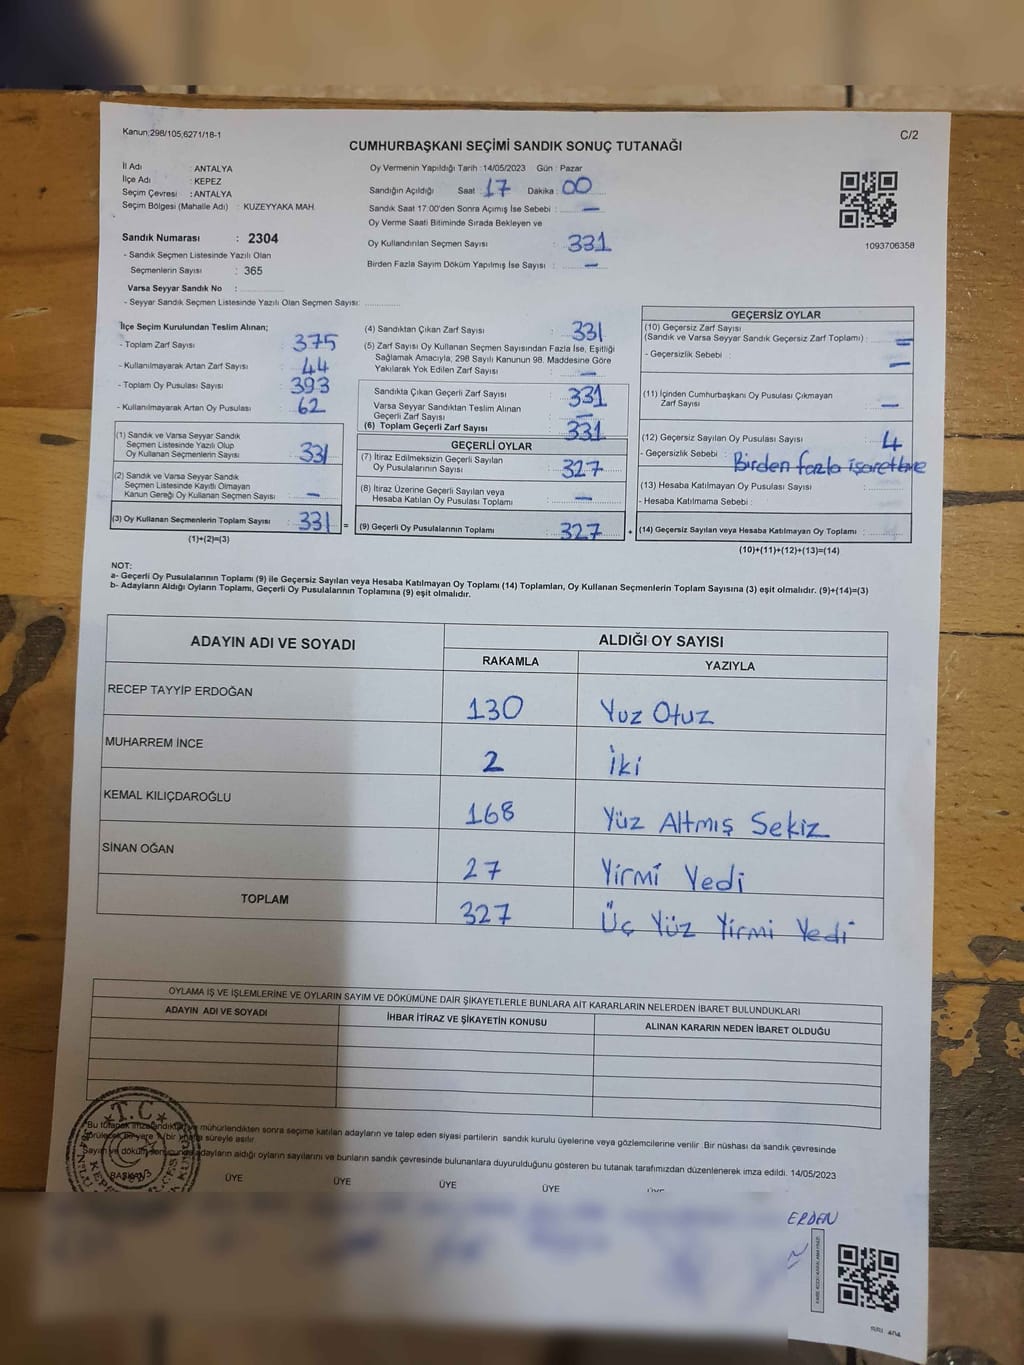 Kanun;298/105,6271/18-1
C/2
CUMHURBAŞKANI SEÇİMİ SANDIK SONUÇ TUTANAĞI
İl Adı : ANTALYA
İlçe Adı : KEPEZ
Seçim Çevresi : ANTALYA
Seçim Bölgesi (Mahalle Adı) : KUZEYYAKA MAH.
Sandık Numarası : 2304
- Sandık Seçmen Listesinde Yazılı Olan
Seçmenlerin Sayısı : 365
Varsa Seyyar Sandık No :
- Seyyar Sandık Seçmen Listesinde Yazılı Olan Seçmen Sayısı:
Oy Vermenin Yapıldığı Tarih : 14/05/2023 Gün : Pazar
Sandığın Açıldığı Saat : 17 Dakika : 00
Sandık Saat 17:00'den Sonra Açımış İse Sebebi : —
Oy Verme Saati Bitiminde Sırada Bekleyen ve
Oy Kullandırılan Seçmen Sayısı : 331
Birden Fazla Sayım Döküm Yapılmış İse Sayısı : —
1093706358
İlçe Seçim Kurulundan Teslim Alınan;
- Toplam Zarf Sayısı : 375
- Kullanılmayarak Artan Zarf Sayısı : 44
- Toplam Oy Pusulası Sayısı : 393
- Kullanılmayarak Artan Oy Pusulası : 62
(1) Sandık ve Varsa Seyyar Sandık
Seçmen Listesinde Yazılı Olup
Oy Kullanan Seçmenlerin Sayısı : 331
(2) Sandık ve Varsa Seyyar Sandık
Seçmen Listesinde Kayıtlı Olmayan
Kanun Gereği Oy Kullanan Seçmen Sayısı : —
(3) Oy Kullanan Seçmenlerin Toplam Sayısı : 331 =
(1)+(2)=(3)
(4) Sandıktan Çıkan Zarf Sayısı : 331
(5) Zarf Sayısı Oy Kullanan Seçmen Sayısından Fazla İse, Eşitliği
Sağlamak Amacıyla, 298 Sayılı Kanunun 98. Maddesine Göre
Yakılarak Yok Edilen Zarf Sayısı : —
Sandıkta Çıkan Geçerli Zarf Sayısı : 331
Varsa Seyyar Sandıktan Teslim Alınan
Geçerli Zarf Sayısı : —
(6) Toplam Geçerli Zarf Sayısı : 331
GEÇERLİ OYLAR
(7) İtiraz Edilmeksizin Geçerli Sayılan
Oy Pusulalarının Sayısı : 327
(8) İtiraz Üzerine Geçerli Sayılan veya
Hesaba Katılan Oy Pusulası Toplamı : —
(9) Geçerli Oy Pusulalarının Toplamı : 327 +
GEÇERSİZ OYLAR
(10) Geçersiz Zarf Sayısı
(Sandık ve Varsa Seyyar Sandık Geçersiz Zarf Toplamı) : —
- Geçersizlik Sebebi : —
(11) İçinden Cumhurbaşkanı Oy Pusulası Çıkmayan
Zarf Sayısı : —
(12) Geçersiz Sayılan Oy Pusulası Sayısı : 4
- Geçersizlik Sebebi : Birden fazla işaretleme
(13) Hesaba Katılmayan Oy Pusulası Sayısı :
- Hesaba Katılmama Sebebi :
(14) Geçersiz Sayılan veya Hesaba Katılmayan Oy Toplamı :
(10)+(11)+(12)+(13)=(14)
NOT:
a- Geçerli Oy Pusulalarının Toplamı (9) ile Geçersiz Sayılan veya Hesaba Katılmayan Oy Toplamı (14) Toplamları, Oy Kullanan Seçmenlerin Toplam Sayısına (3) eşit olmalıdır. (9)+(14)=(3)
b- Adayların Aldığı Oyların Toplamı, Geçerli Oy Pusulalarının Toplamına (9) eşit olmalıdır.
ADAYIN ADI VE SOYADI ALDIĞI OY SAYISI
RAKAMLA YAZIYLA
RECEP TAYYİP ERDOĞAN 130 Yuz Otuz
MUHARREM İNCE 2 İki
KEMAL KILIÇDAROĞLU 168 Yüz Altmış Sekiz
SİNAN OĞAN 27 Yirmi Yedi
TOPLAM 327 Üç Yüz Yirmi Yedi
OYLAMA İŞ VE İŞLEMLERİNE VE OYLARIN SAYIM VE DÖKÜMÜNE DAİR ŞİKAYETLERLE BUNLARA AİT KARARLARIN NELERDEN İBARET BULUNDUKLARI
ADAYIN ADI VE SOYADI İHBAR İTİRAZ VE ŞİKAYETİN KONUSU ALINAN KARARIN NEDEN İBARET OLDUĞU
mühürlendikten sonra seçime katılan adayların ve talep eden siyasi partilerin sandık kurulu üyelerine veya gözlemcilerine verilir. Bir nüshası da sandık çevresinde
süreyle asılır.
adayların aldığı oyların sayılarını ve bunların sandık çevresinde bulunanlara duyurulduğunu gösteren bu tutanak tarafımızdan düzenlenerek imza edildi. 14/05/2023
T.C.
BAŞKAN ÜYE ÜYE ÜYE ÜYE
ERDEN